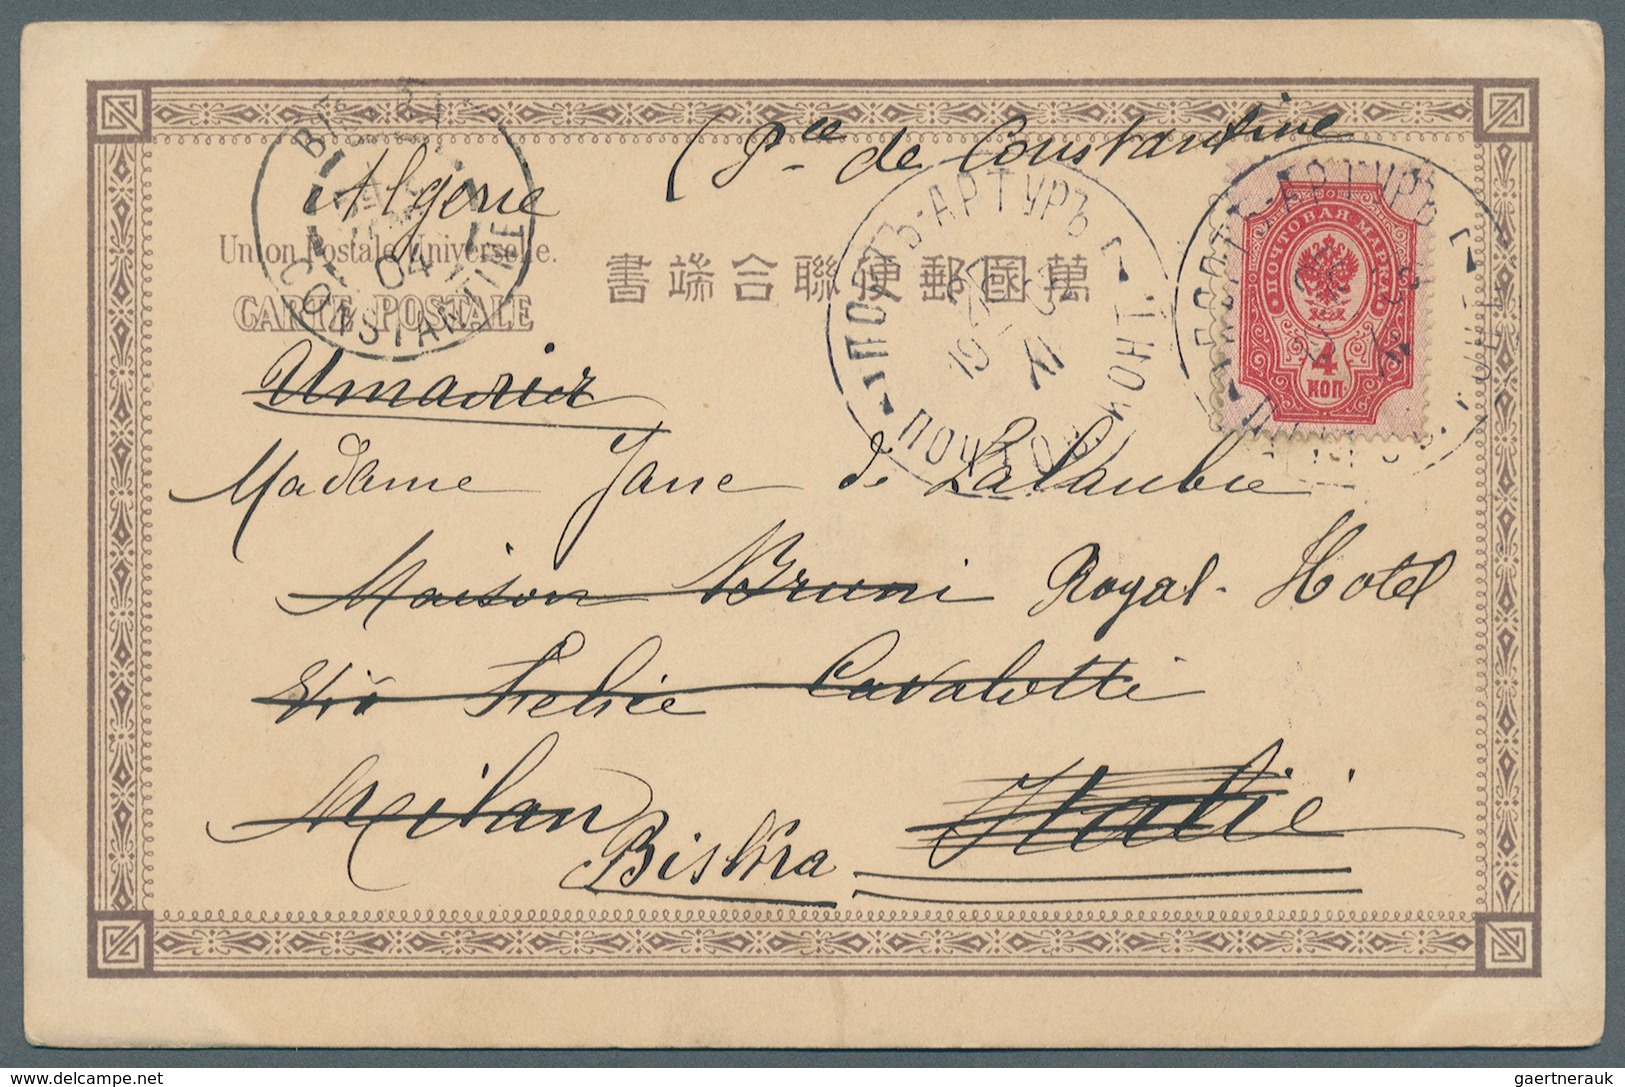 (Pce de Constantine
Algérie
Union Postale Universelle.
CARTE POSTALE
書端合聯便郵國萬
CONSTANTINE
04
ПОРТЪ-АРТУРЪ
ПОЧТОВ. КОНТ.
19 XI
ПОРТЪ-АРТУРЪ
ПОЧТОВАЯ МАРКА
4
КОП.
Madame Jane de Lalaubie
Maison Bruni Royal-Hotel
Via Felice Cavalotti
Milan Italie
Biskra
delcampe.net
gaertnerauk